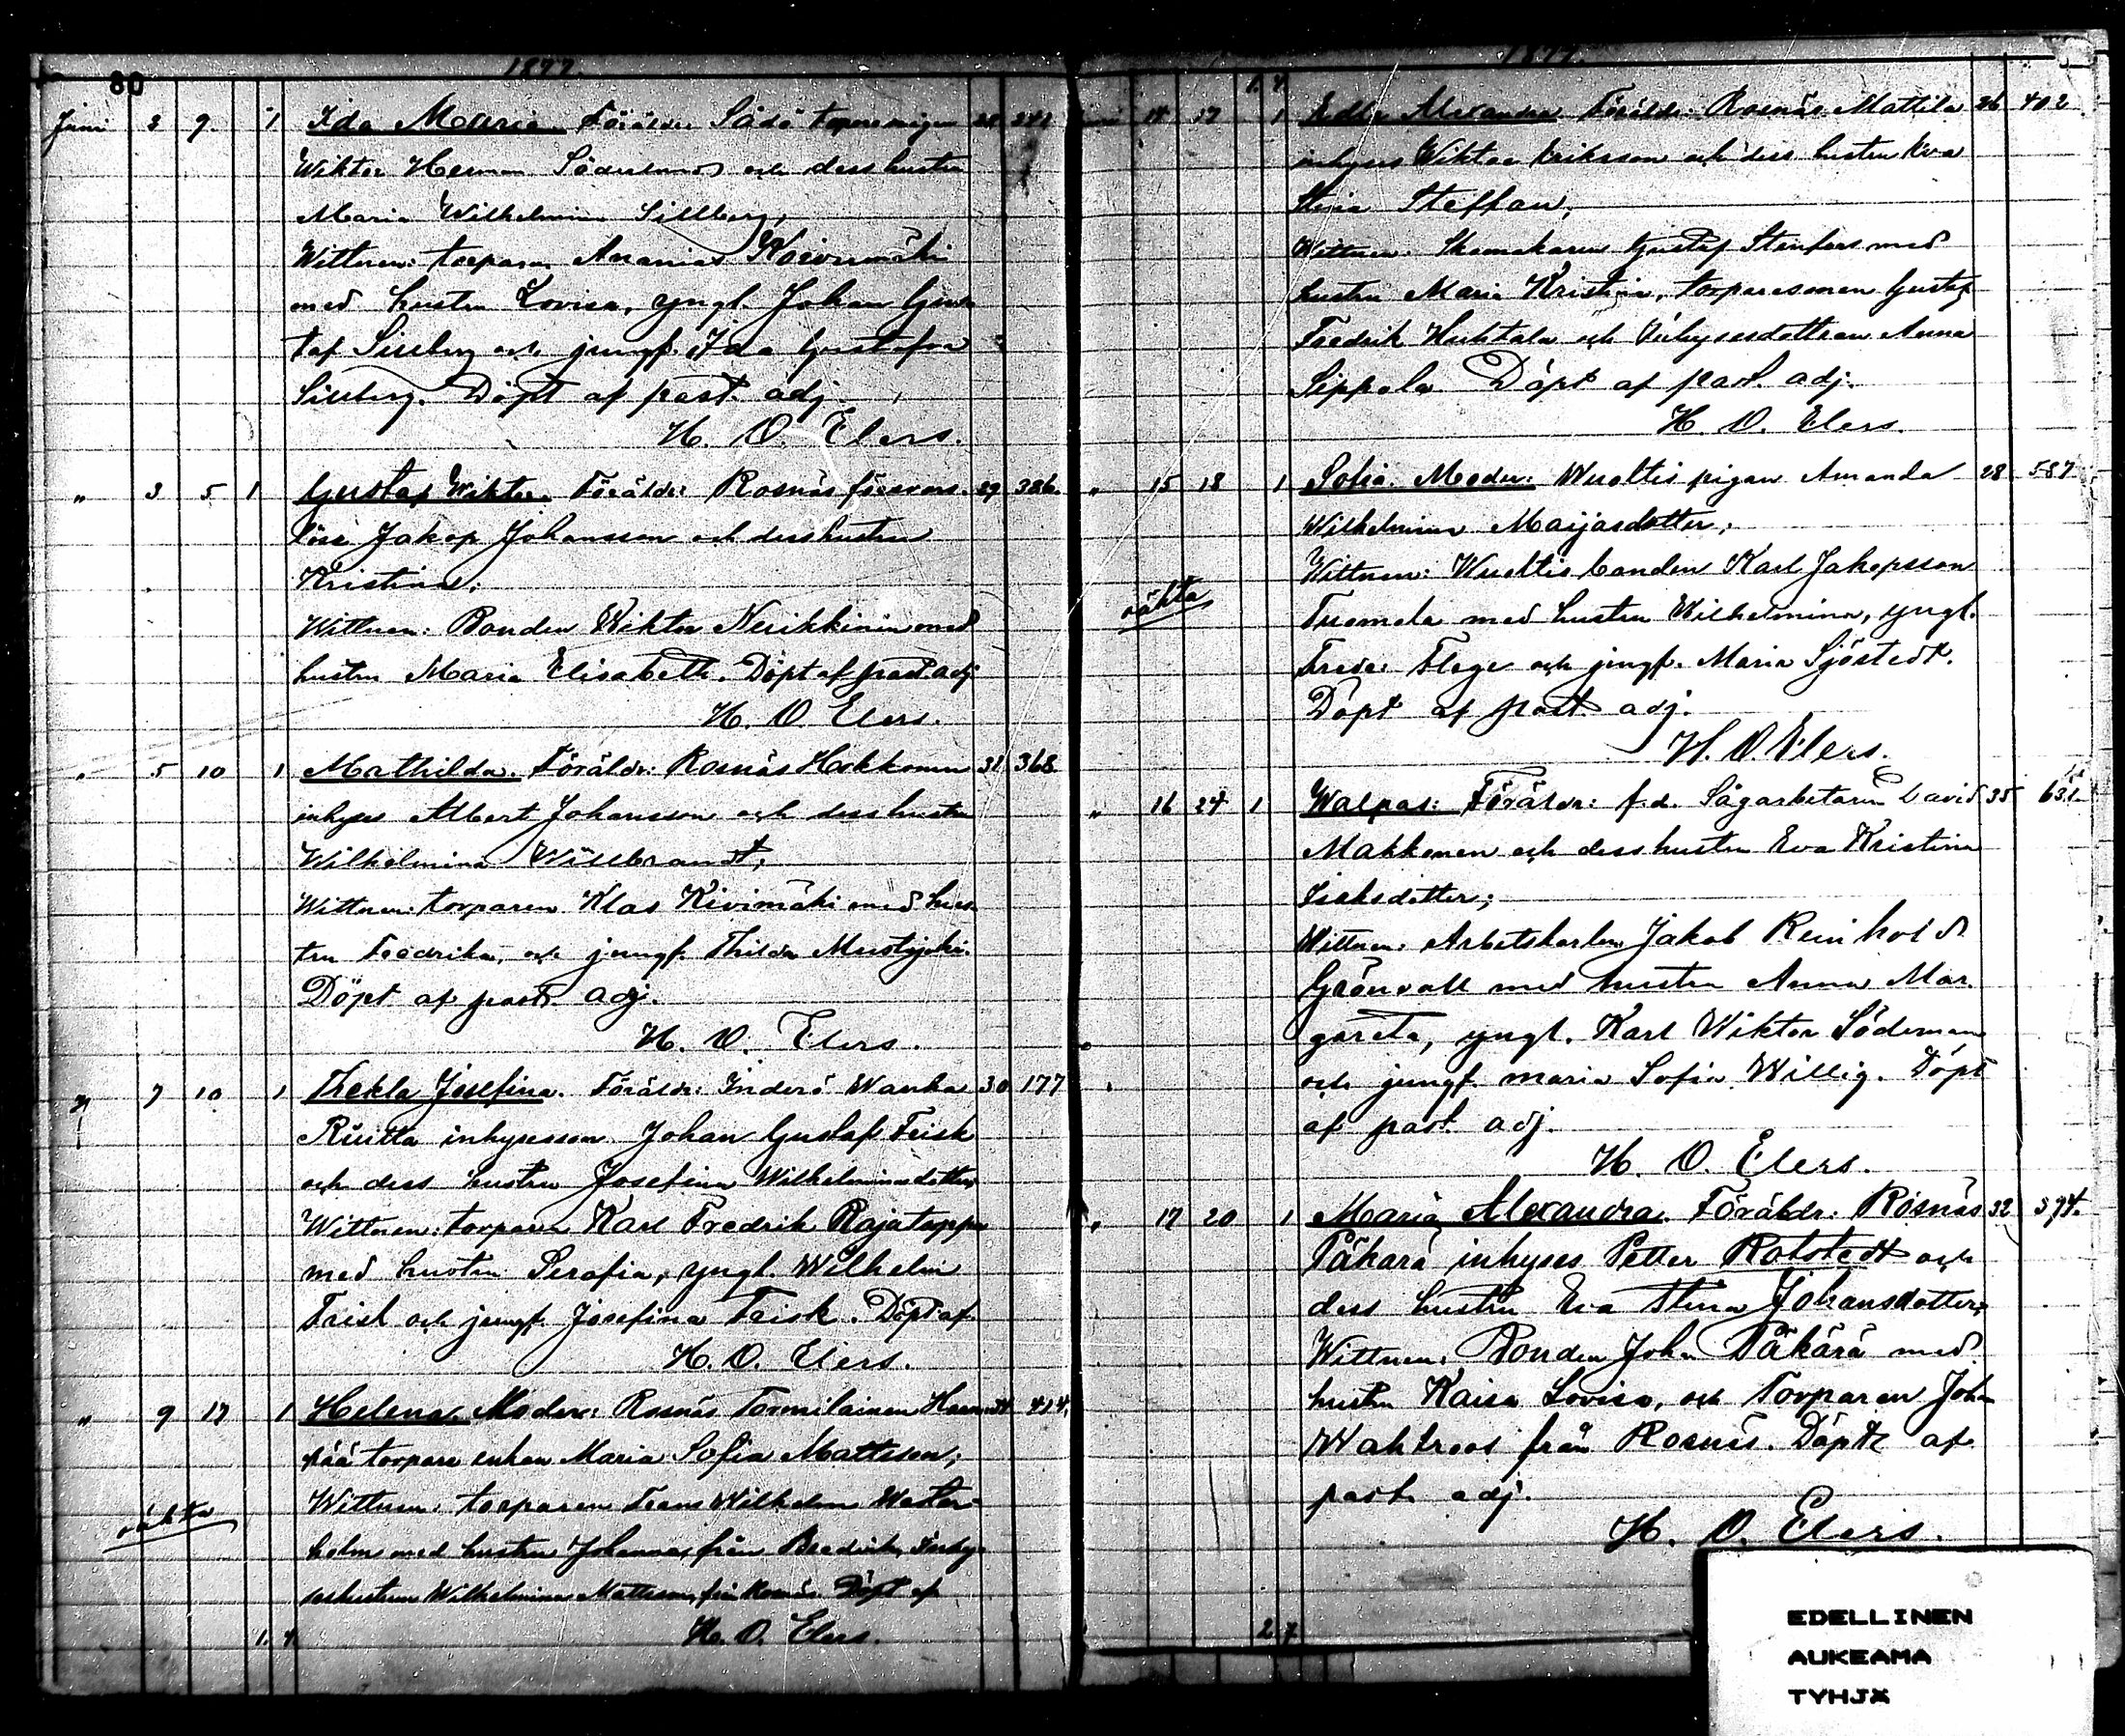 80
1877.
Juni 2 9. 1 Ida Maria. Föräldr: Sådö 28 242
Wiktor Herman Söderlund och dess hustru
Maria Wilhelmina Sillberg;
Wittnen: torparen Ananias Koivumäki
med hustru Lovisa, yngl. Johan Gus
taf Sillberg och jungf. Ida Gustafva
Sillberg. Döpt af past. adj.
H. O. Elers.
" 3 5 1 Gustaf Wiktor. Föräldr: Rosnäs försvars- 29 386.
löse Jakop Johansson och dess hustru
Kristina;
Wittnen: Bonden Wiktor Nerikkinin med
hustru Maria Elisabeth. Döpt af past. adj
H. O. Elers.
" 5 10 1 Mathilda. Föräldr: Rosnäs Hokkonen 31 368
inhyses Albert Johansson och dess hustru
Wilhelmina Willbrandt;
Wittnen: torparen Klas Kivimäki med hus-
tru Fredrika, och jungf. Thilda Mustajoki.
Döpt af past. adj.
H. O. Elers.
" 7 10 1 Thekla Josefina. Föräldr: Inderö Wanha 30 177
Riutta inhysesson Johan Gustaf Frisk
och dess hustru Josefina Wilhelminasdotter;
Wittnen: torparen Karl Fredrik Rajatorppa
med hustru Serafia, yngl. Wilhelm
Frisk och jungf. Josefina Frisk. Döpt af
H. O. Elers.
" 9 17 1 Helena. Moder: Rosnäs Tormilainen Haan 34 414.
pää torpare enkan Maria Sofia Mattsson;
Wittnen: torparen Frans Wilhelm Wester-
oäkta
holm med hustru Johanna, från Inhy-
seshustrun Wilhelmina Mattsson, från Rosnäs. Döpt af
1. 4. H. O. Elers.
1877.
1. 4.
Juni 14 17 1 Edla Alexandra. Föräldr: Rosnäs Mattila 26 402
inhyses Wiktor Eriksson och dess hustru Eva
Stina Steffan;
Wittnen: Skomakaren Gustaf Stenfors med
hustru Maria Kristina, torparesonen Gustaf
Fredrik Huhtala och Inhysesdottren Anna
Sippola. Döpt af past. adj.
H. O. Elers.
" 15 18 1 Sofia. Moder: Wuoltis pigan Amanda 28 587
Wilhelmina Maijasdotter;
Wittnen: Wuoltis bonden Karl Jakopsson
oäkta
Tuomola med hustru Wilhelmina, yngl.
Fredr. Flege och jungf. Maria Sjöstedt.
Döpt af past. adj.
H. O. Elers.
" 16 24 1 Walpas: Föräldr: f.d. Sågarbetaren David 35 631
Makkonen och dess hustru Eva Kristina
Isaksdotter;
Wittnen: Arbetskarlen Jakob Reinhold
Grönvall med hustru Anna Mar-
gareta, yngl. Karl Wiktor Söderman
och jungf. Maria Sofia Willig. Döpt
af past. adj.
H. O. Elers.
" 17 20 1 Maria Alexandra. Föräldr: Rosnäs 32 394.
Päkärä inhyses Petter Rotstedt och
dess hustru Eva Stina Johansdotter;
Wittnen: Bonden Joh. Päkärä med
hustru Kaisa Lovisa, och Torparen Johan
Wahlroos från Rosnäs. Döpt af
past. adj.
H. O. Elers.
2. 7.
EDELLINEN
AUKEAMA
TYHJÄ